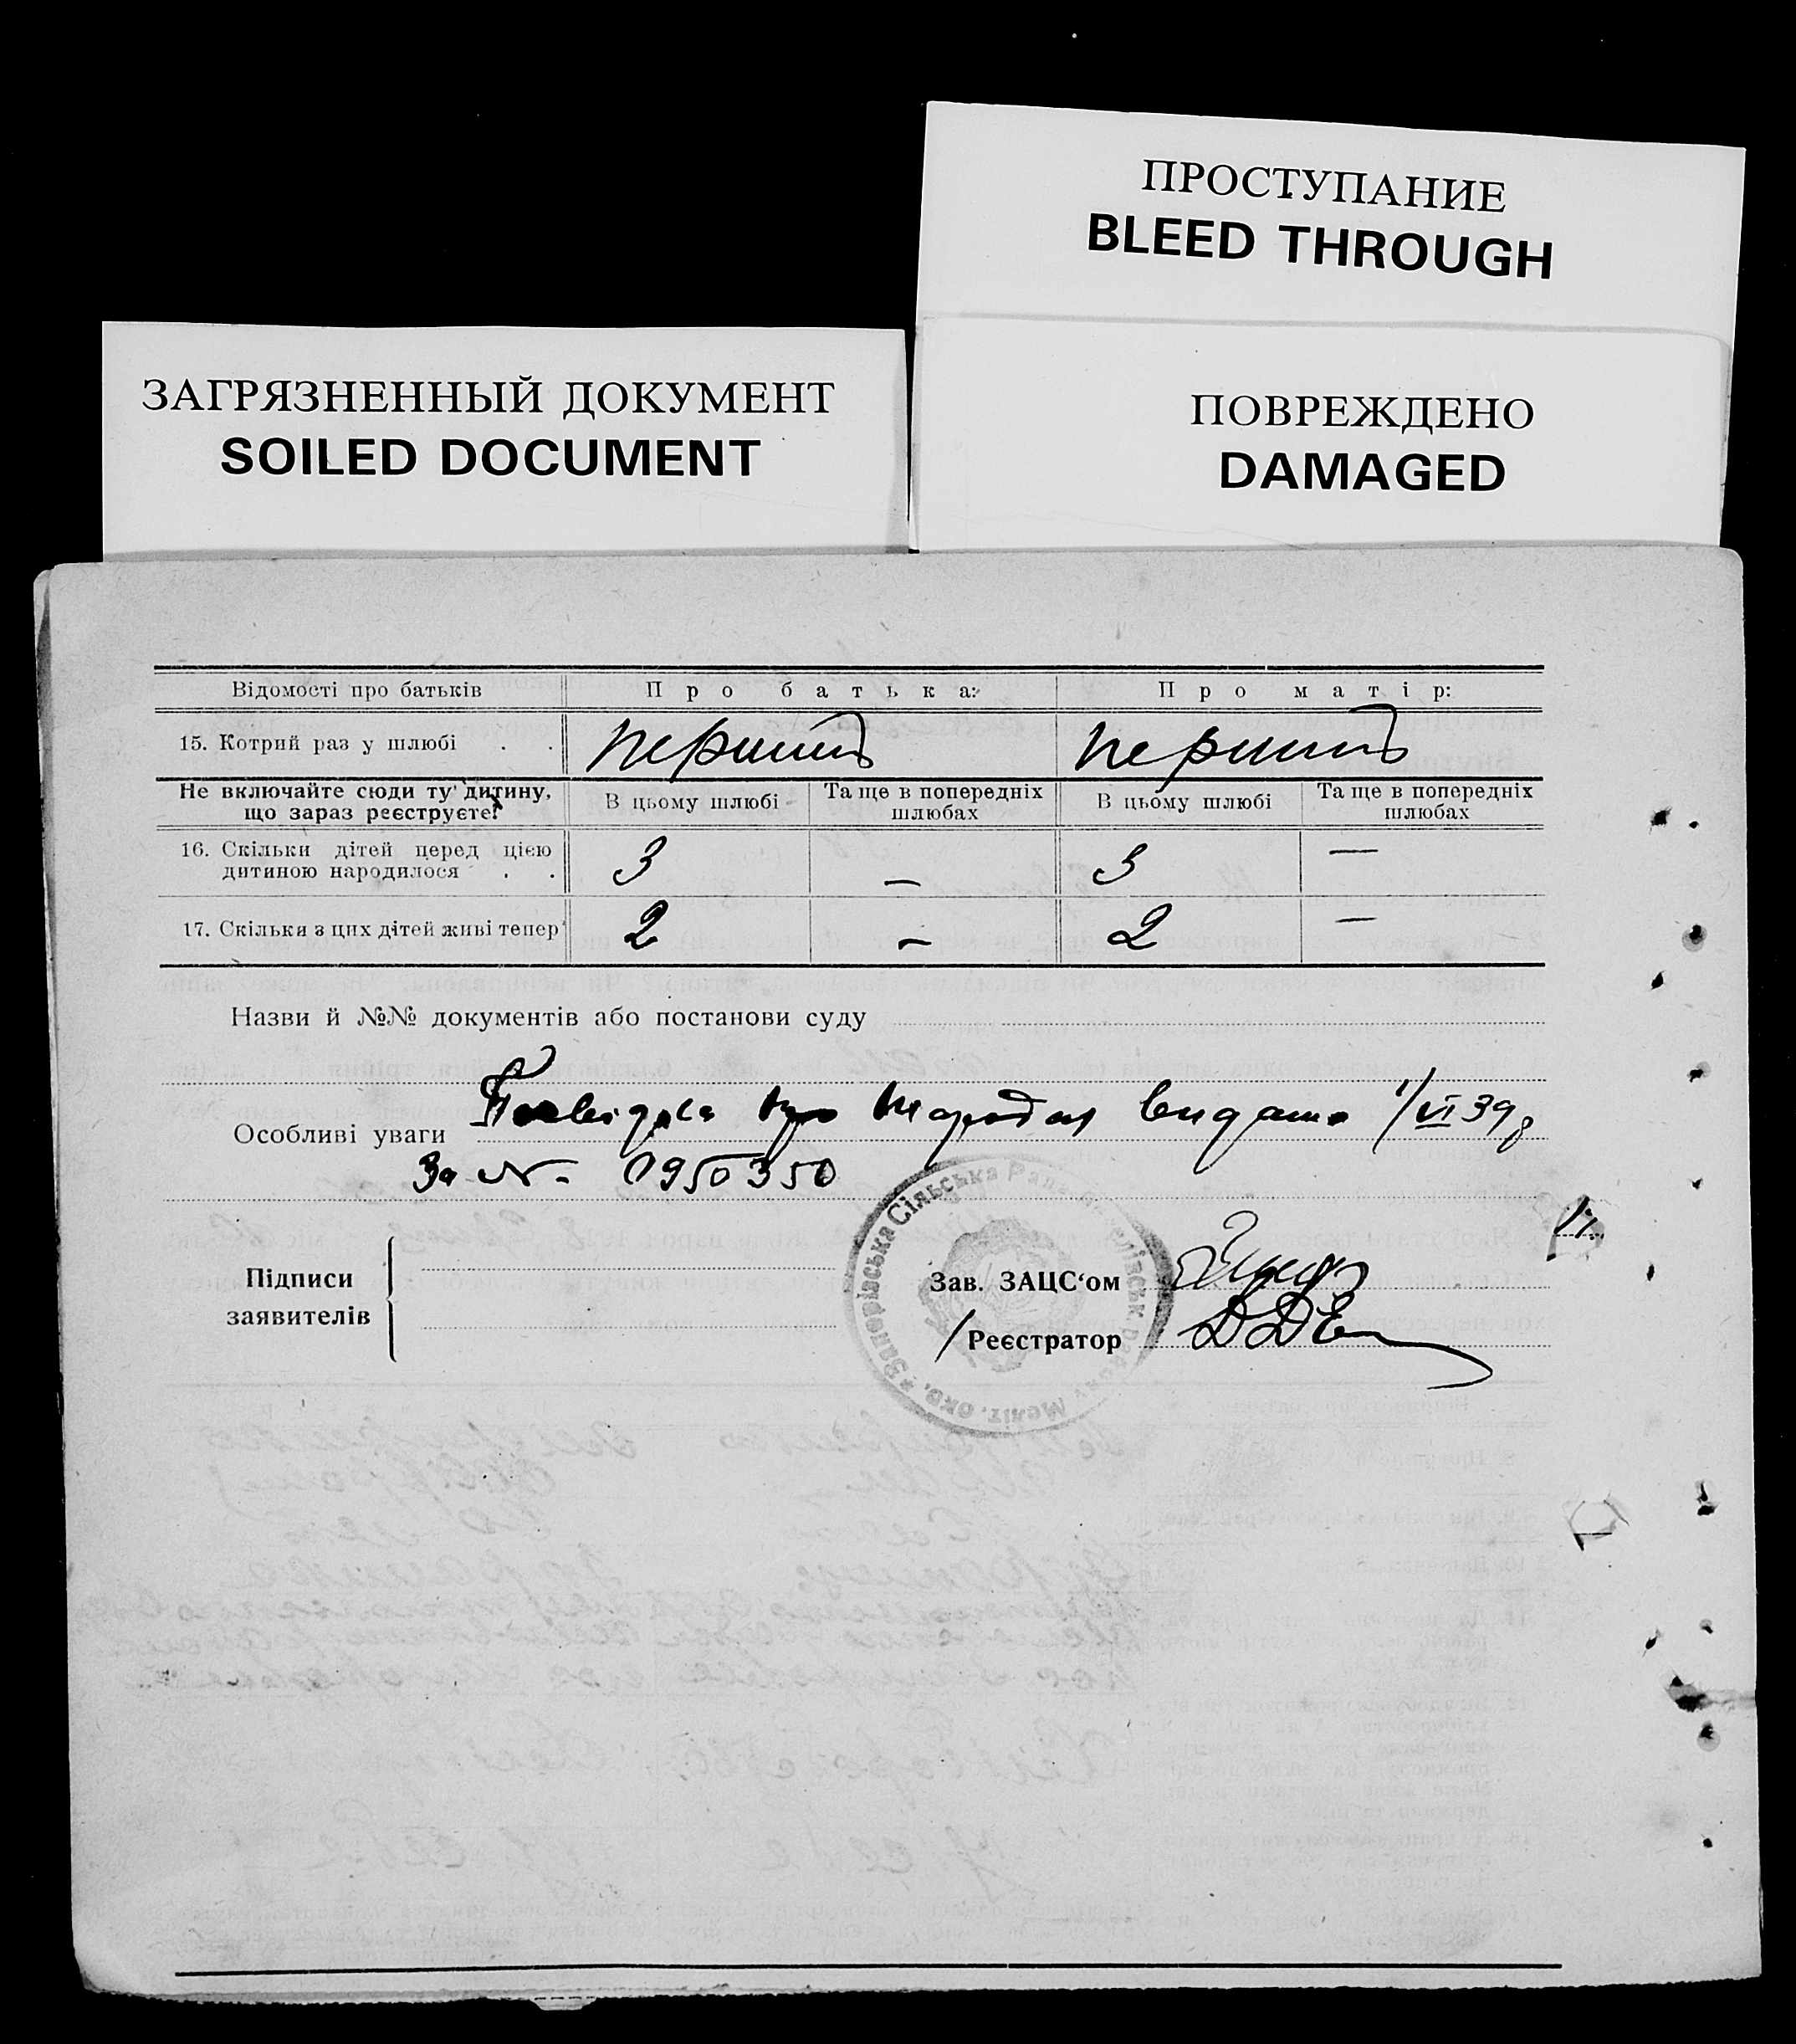 ПРОСТУПАНИЕ
BLEED THROUGH
ЗАГРЯЗНЕННЫЙ ДОКУМЕНТ
SOILED DOCUMENT
ПОВРЕЖДЕНО
DAMAGED
Відомості про батьків Про батька: Про матір:
15. Котрий раз у шлюбі . . перший перший
Не включайте сюди ту дитину, що зараз реєструєте! В цьому шлюбі Та ще в попередніх шлюбах В цьому шлюбі Та ще в попередніх шлюбах
16. Скільки дітей перед цією дитиною народилося . . 3 — 3 —
17. Скільки з цих дітей живі тепер 2 — 2 —
Назви й №№ документів або постанови суду
Особливі уваги Посвідка про народж видана 1/VI 39р
За № - 1950350
Підписи заявителів
Зав. ЗАЦС‘ом
/Реєстратор
Запорівська Сільська Рада Меліт. окр.